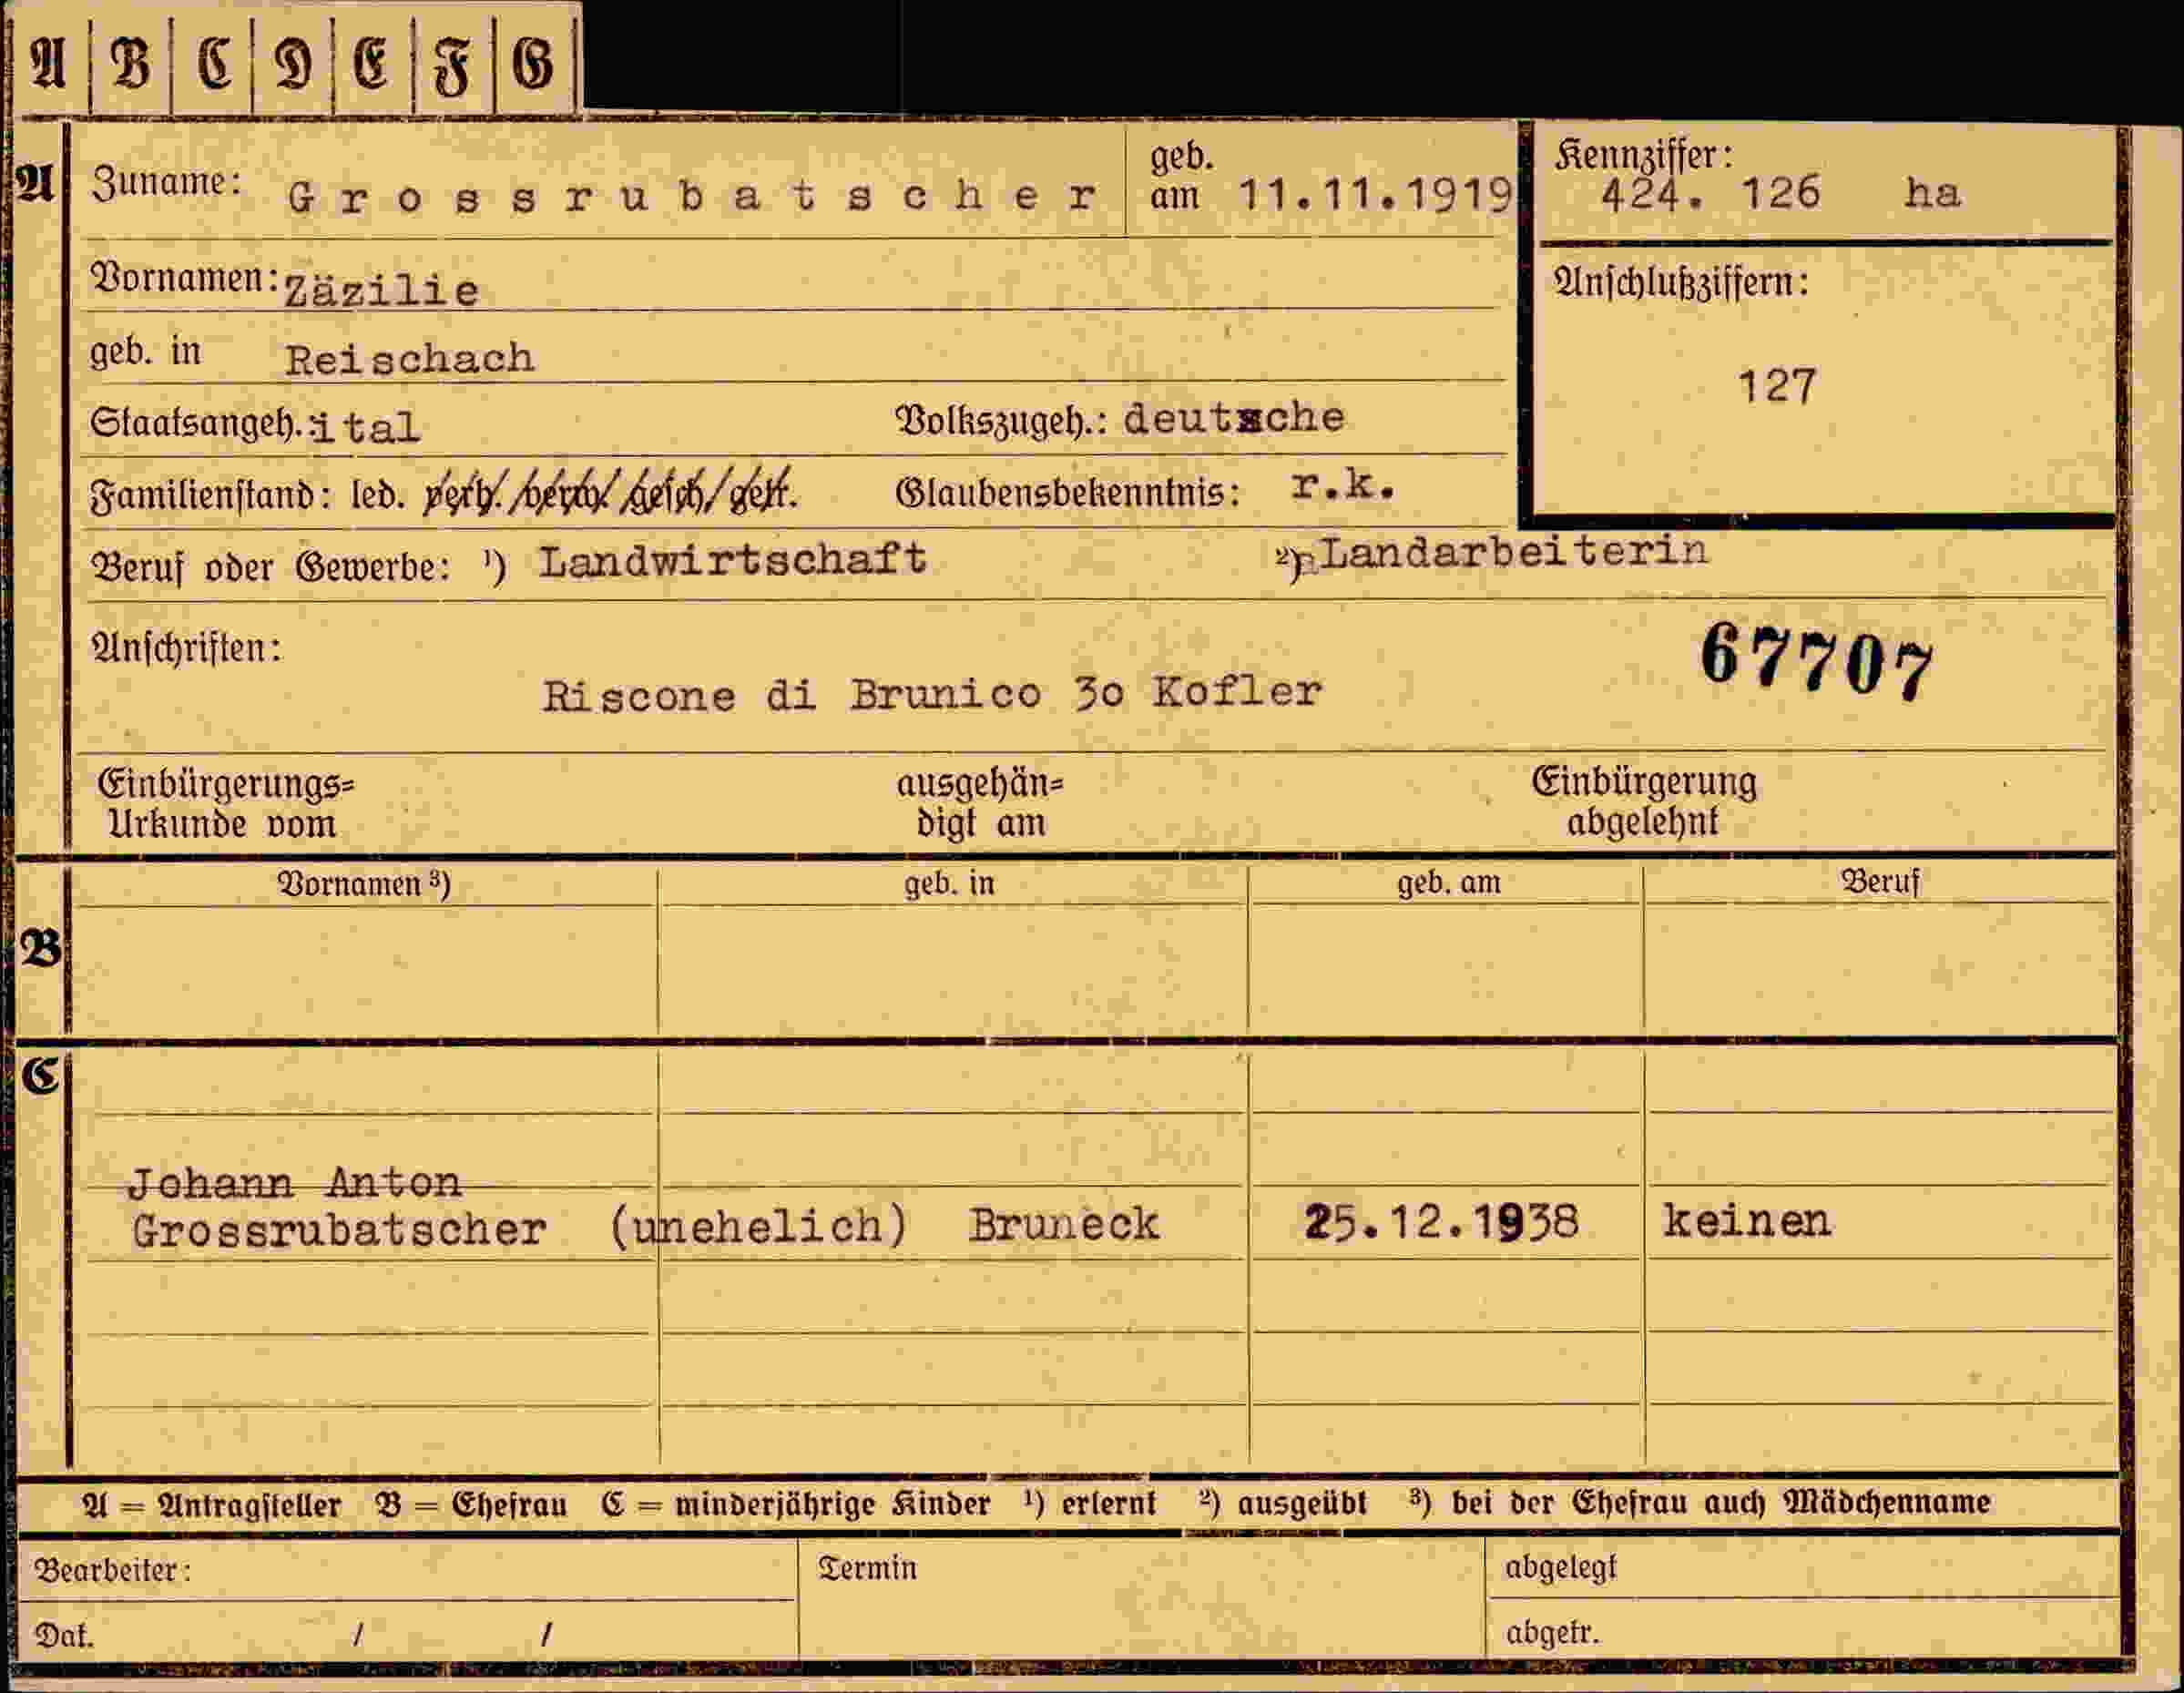 A B C D E F G
A Zuname: Grossrubatscher geb. am 11.11.1919 Kennziffer: 424. 126 ha
Vornamen: Zäzilie Anschlußziffern:
geb. in Reischach 127
Staatsangeh.: ital Volkszugeh.: deutsche
Familienstand: led. verh. verw. gesch. getr. Glaubensbekenntnis: r.k.
Beruf oder Gewerbe: ¹) Landwirtschaft ²) Landarbeiterin
Anschriften: 67707
Riscone di Brunico 3o Kofler
Einbürgerungs= ausgehän= Einbürgerung
Urkunde vom digt am abgelehnt
Vornamen ³) geb. in geb. am Beruf
B
C
Johann Anton
Grossrubatscher (unehelich) Bruneck 25.12.1938 keinen
A = Antragsteller B = Ehefrau C = minderjährige Kinder ¹) erlernt ²) ausgeübt ³) bei der Ehefrau auch Mädchenname
Bearbeiter: Termin abgelegt
Dat. / / abgetr.